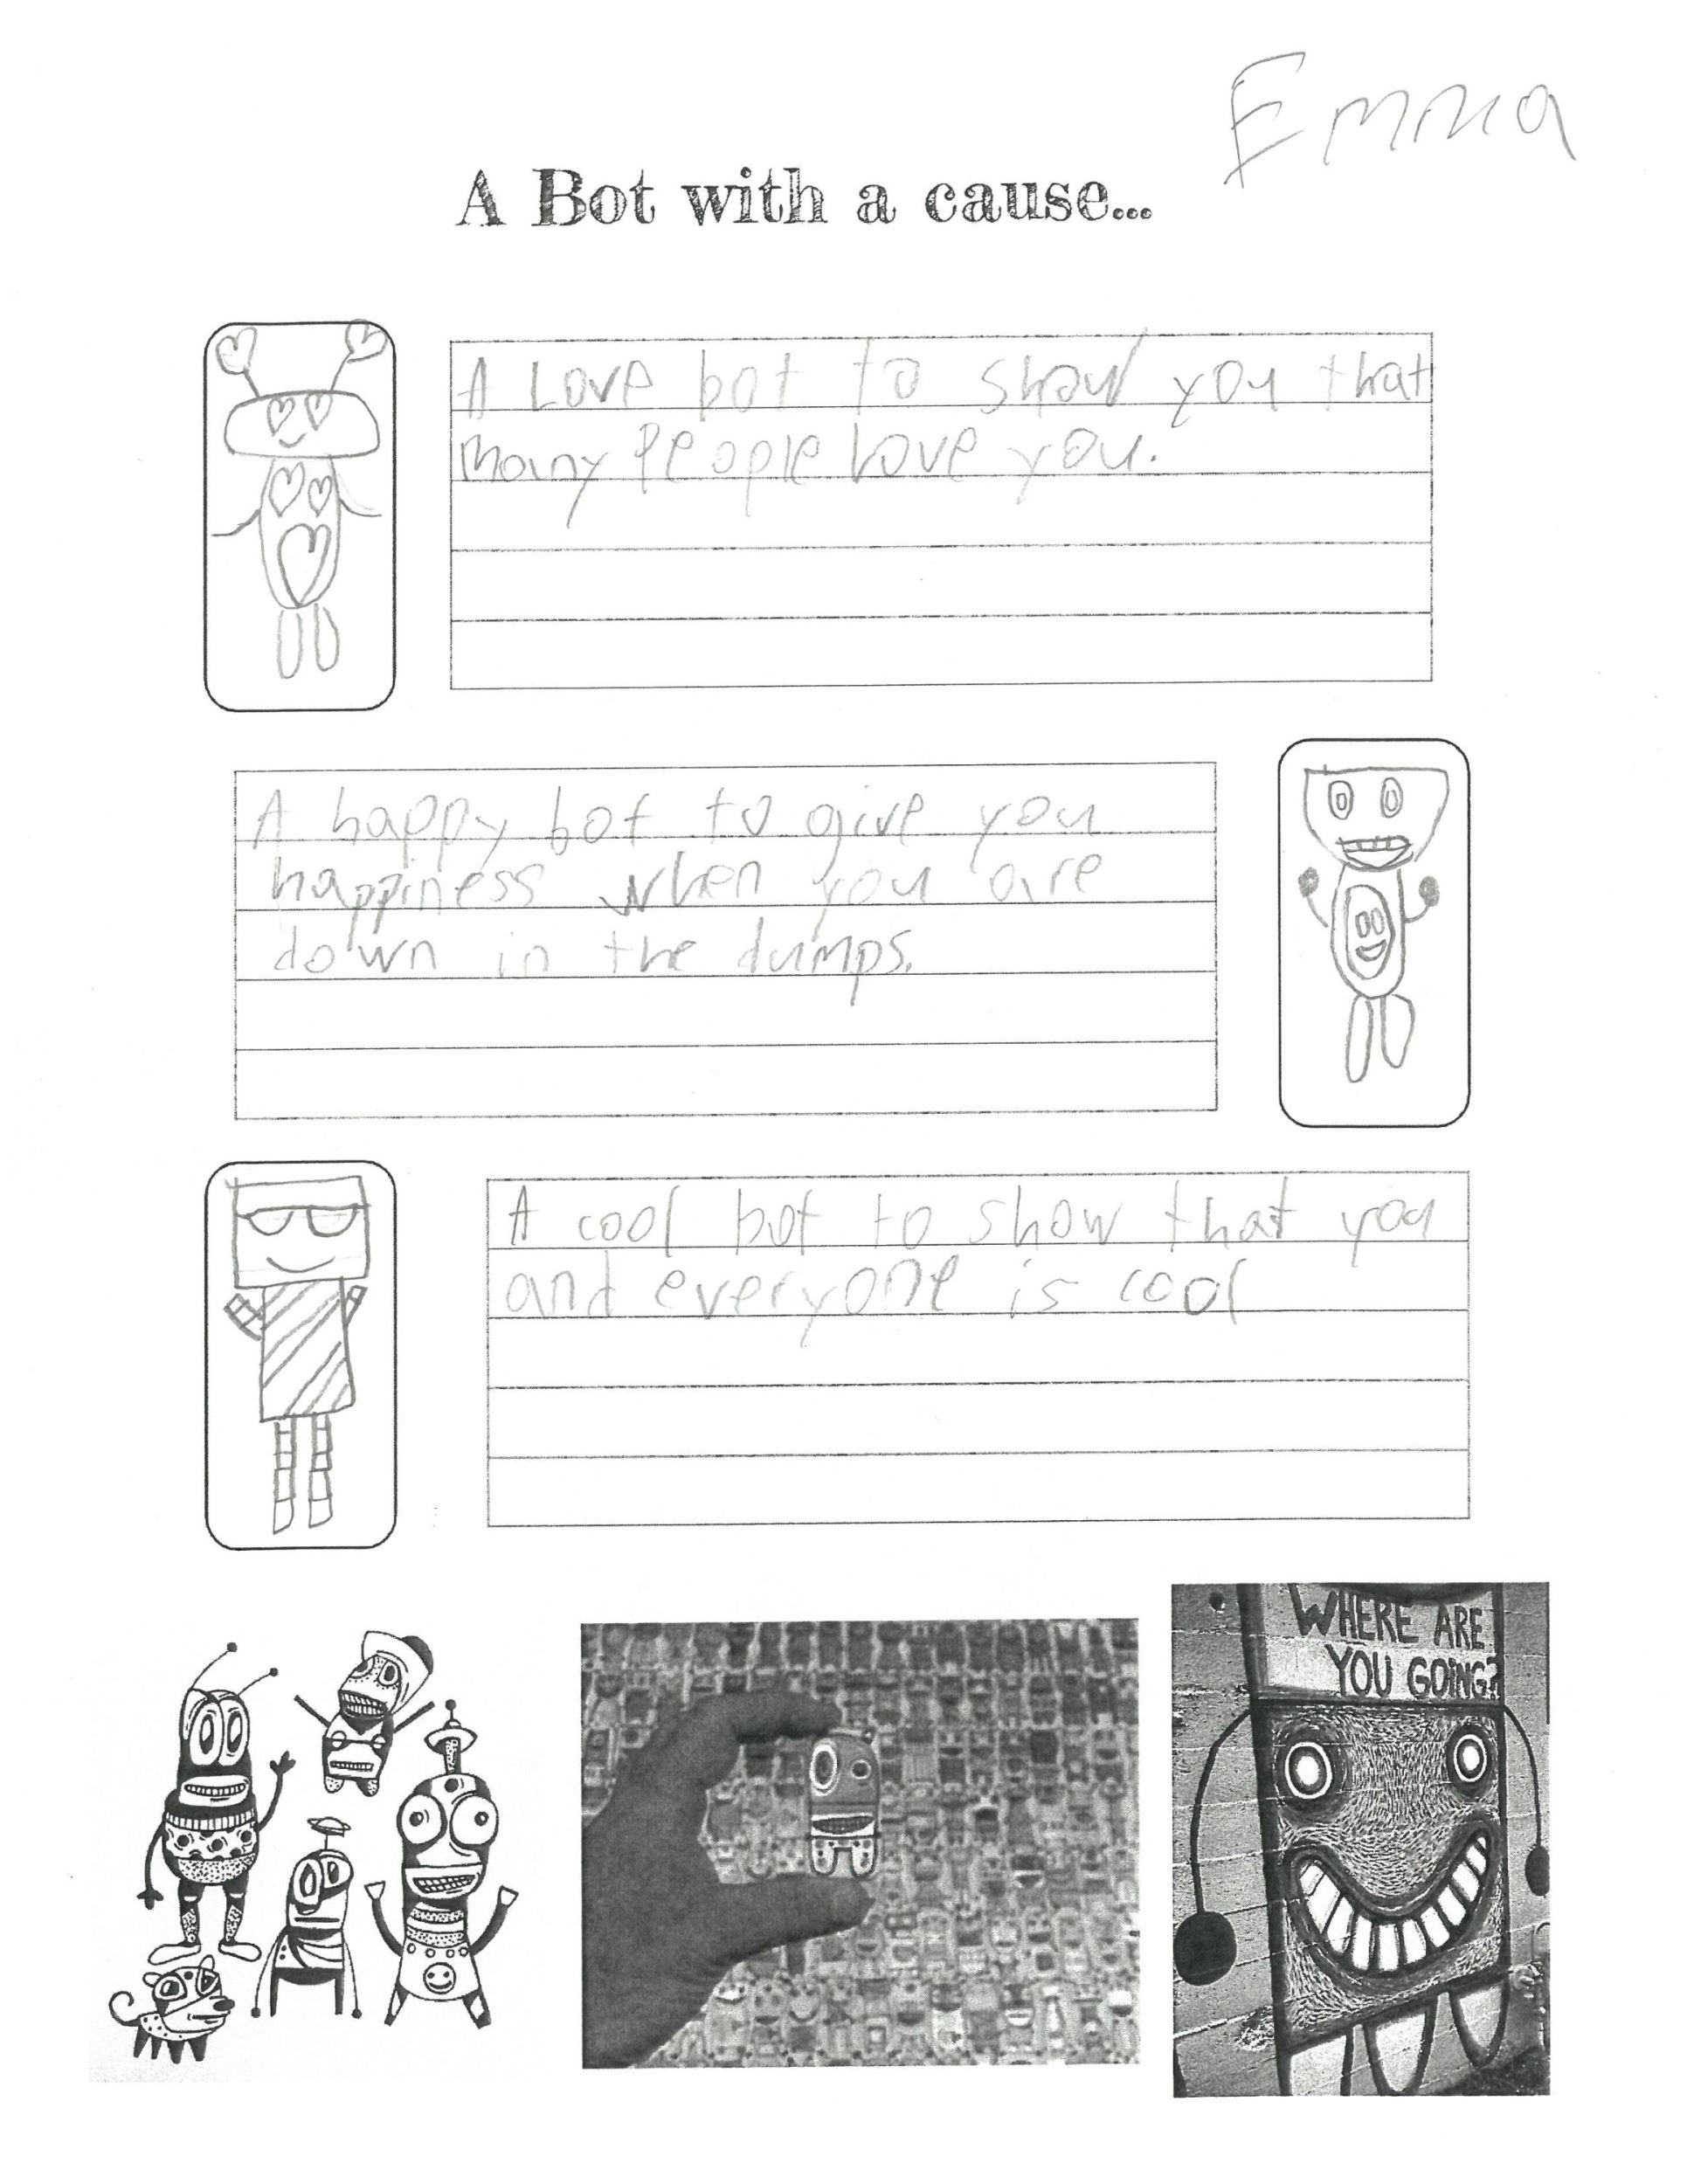 Emma
A Bot with a cause...
A Love bot to show you that
many People love you.
A happy bot to give you
happiness when you are
down in the dumps.
A cool bot to show that you
and everyone is cool
WHERE ARE
YOU GOING?